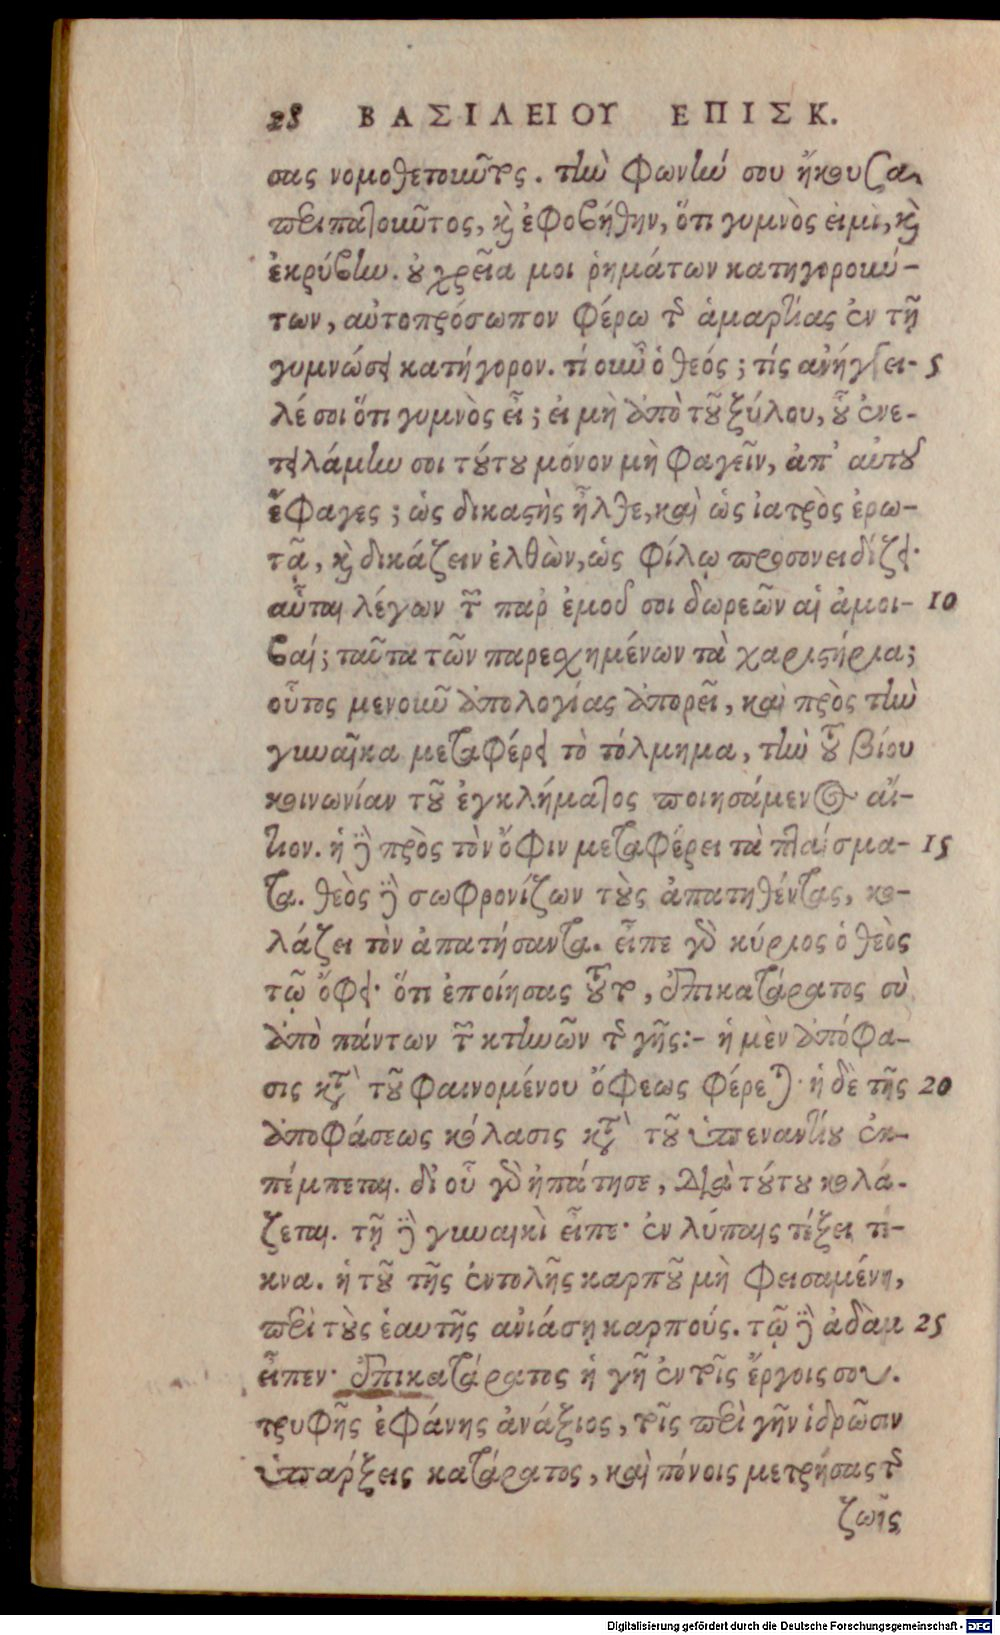 28 ΒΑΣΙΛΕΙΟΥ ΕΠΙΣΚ.
σας νομοθετοῦντος. τὴν φωνήν σου ἤκουσα
περιπατοῦντος, καὶ ἐφοβήθην, ὅτι γυμνὸς εἰμὶ, καὶ
ἐκρύβην. οὐ χρεία μοι ῥημάτων κατηγορούν-
των, αὐτοπρόσωπον φέρω τῆς ἁμαρτίας ἐν τῇ
γυμνώσει κατήγορον. τί οὖν ὁ θεός; τίς ἀνήγγει- 5
λέ σοι ὅτι γυμνὸς εἶ; εἰ μὴ ἀπὸ τοῦ ξύλου, οὗ ἐνε-
τειλάμην σοι τούτου μόνον μὴ φαγεῖν, ἀπ' αὐτοῦ
ἔφαγες; ὡς δικαστὴς ἦλθε, καὶ ὡς ἰατρὸς ἐρω-
τᾷ, καὶ δικάζειν ἐλθὼν, ὡς φίλῳ προσονειδίζει·
αὗται λέγων τῶν παρ' ἐμοῦ σοι δωρεῶν αἱ ἀμοι- 10
βαί; ταῦτα τῶν παρεσχημένων τὰ χαριστήρια;
οὗτος μενοῦν ἀπολογίας ἀπορεῖ, καὶ πρὸς τὴν
γυναῖκα μεταφέρει τὸ τόλμημα, τὴν τοῦ βίου
κοινωνίαν τοῦ ἐγκλήματος ποιησάμενος αἴ-
τιον. ἡ δὲ πρὸς τὸν ὄφιν μεταφέρει τὰ πλαίσμα- 15
τα. θεὸς δὲ σωφρονίζων τοὺς ἀπατηθέντας, κο-
λάζει τὸν ἀπατήσαντα. εἶπε γὰρ κύριος ὁ θεὸς
τῷ ὄφει· ὅτι ἐποίησας τοῦτο, ἐπικατάρατος σὺ
ἀπὸ πάντων τῶν κτηνῶν τῆς γῆς:- ἡ μὲν ἀπόφα-
σις κατὰ τοῦ φαινομένου ὄφεως φέρεται· ἡ δὲ τῆς 20
ἀποφάσεως κόλασις κατὰ τοῦ ὑπεναντίου ἐκ-
πέμπεται. δι οὗ γὰρ ἠπάτησε, διὰ τούτου κολά-
ζεται. τῇ δὲ γυναικὶ εἶπε· ἐν λύπαις τέξει τέ-
κνα. ἡ τοῦ τῆς ἐντολῆς καρποῦ μὴ φεισαμένη,
περὶ τοὺς ἑαυτῆς ἀνιάσῃ καρπούς. τῷ δὲ ἀδὰμ 25
εἶπεν· ἐπικατάρατος ἡ γῆ ἐν τοῖς ἔργοις σου.
τρυφῆς ἐφάνης ἀνάξιος, τοῖς περὶ γῆν ἱδρῶσιν
ὑπάρξεις κατάρατος, καὶ πόνοις μετρήσας τῆς
ζωῆς
Digitalisierung gefördert durch die Deutsche Forschungsgemeinschaft - DFG